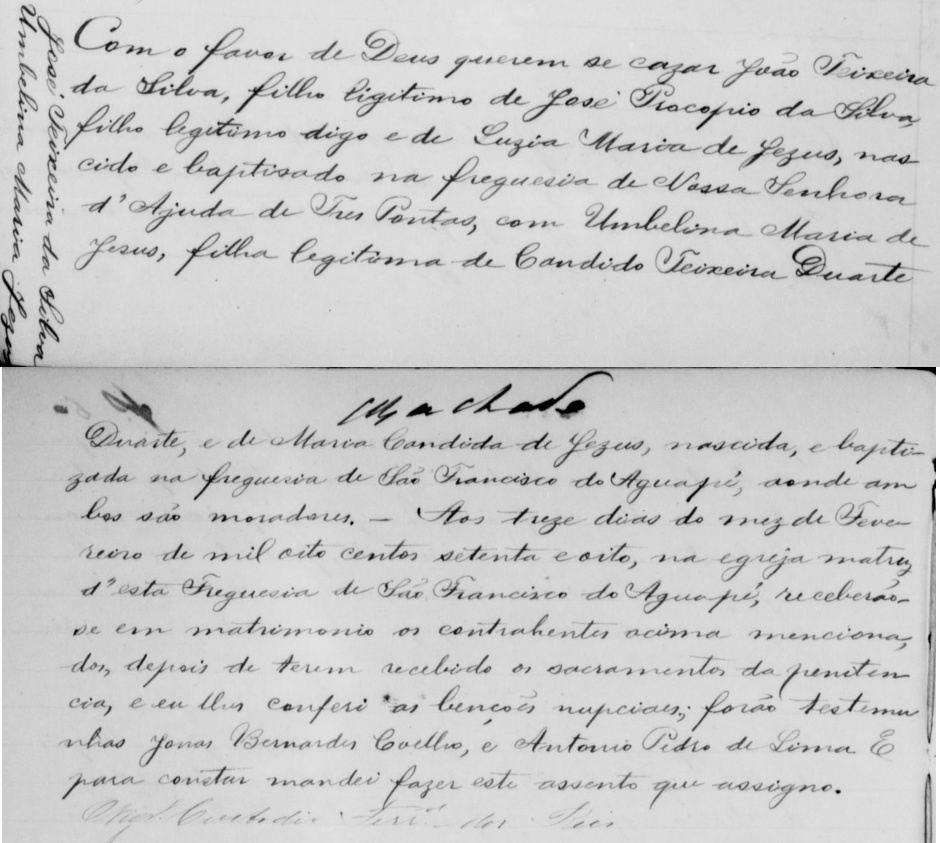 José Teixeira da Silva
Umbelina Maria Jezus
Com o favor de Deus querem se cazar João Teixeira
da Silva, filho ligitimo de José Procopio da Silva,
filho legitimo digo e de Luzia Maria de Jezus, nas
cido e baptisado na freguesia de Nossa Senhora
d'Ajuda de Tres Pontas, com Umbelina Maria de
Jesus, filha legitima de Candido Teixeira Duarte
Machado
Duarte, e de Maria Candida de Jezus, nascida, e bapti-
zada na freguesia de São Francisco do Aguapé, aonde am
bos são moradores. — Aos treze dias do mez de Feve-
reiro de mil oito centos setenta e oito, na egreja matriz
d'esta Freguesia de São Francisco do Aguapé, receberão-
se em matrimonio os contrahentes acima menciona,
dos, depois de terem recebido os sacramentos da peniten
cia, e eu lhes conferi as benções nupciaes; forão testemu
nhas Jonas Bernardes Coelho, e Antonio Pedro de Lima E
para constar mandei fazer este assento que assigno.
Custodio dos Reis